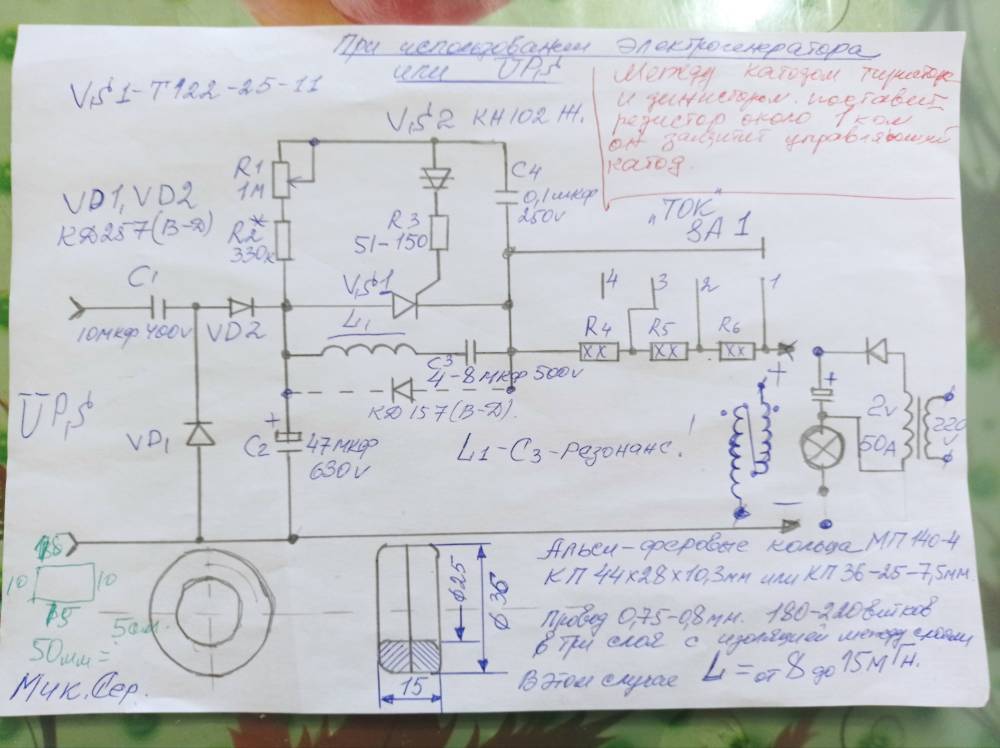 При использовании электрогенератора
или UPS
VS1-Т122-25-11
Между катодом тиристора
и динистором. поставит
резистор около 1 ком
он защитит управляющий
катод.
VS2 КН102Ж.
R1
1М
C4
0,1мкф
250v
VD1, VD2
КД257(В-Д)
R2*
330к
R3
51-150
„ТОК"
SA1
C1
10мкф 400v
VD2
VS1
4
3
2
1
L1
R4
R5
R6
XX
XX
XX
C3
4-8мкф 500v
КД157(В-Д).
UPS
VD1
+
C2
47мкф
630v
L1-C3-резонанс.
+
+
2v
50А
220
v
Альси-феровые кольца МП140-4
КП 44х28х10,3мм или КП 36-25-7,5мм.
Провод 0,75-0,8мм. 180-220витков
в три слоя с изоляцией между слоями
В этом случае L = от 8 до 15мГн.
10
10
15
5см.
50мм=
Ø25
Ø 36
15
Мик. Сер.